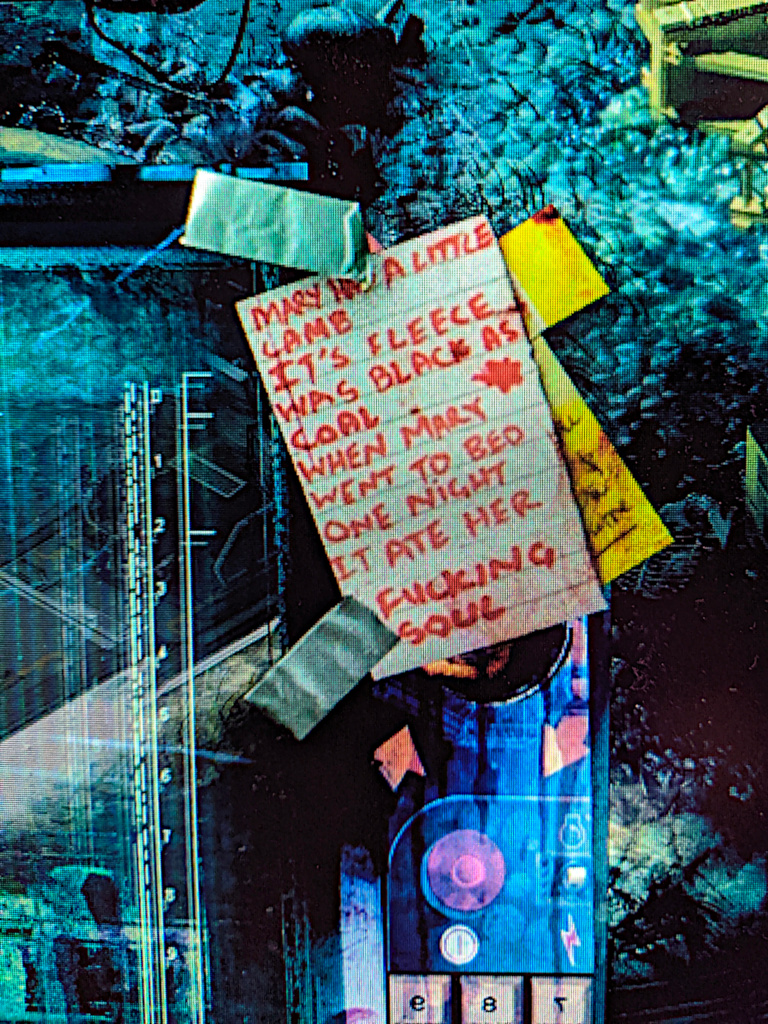 MARY A LITTLE
LAMB
IT'S FLEECE
WAS BLACK AS
COAL
WHEN MARY
WENT TO BED
ONE NIGHT
IT ATE HER
FUCKING
SOUL
0
1
2
3
4
5
6
7
8
9
9 8 7